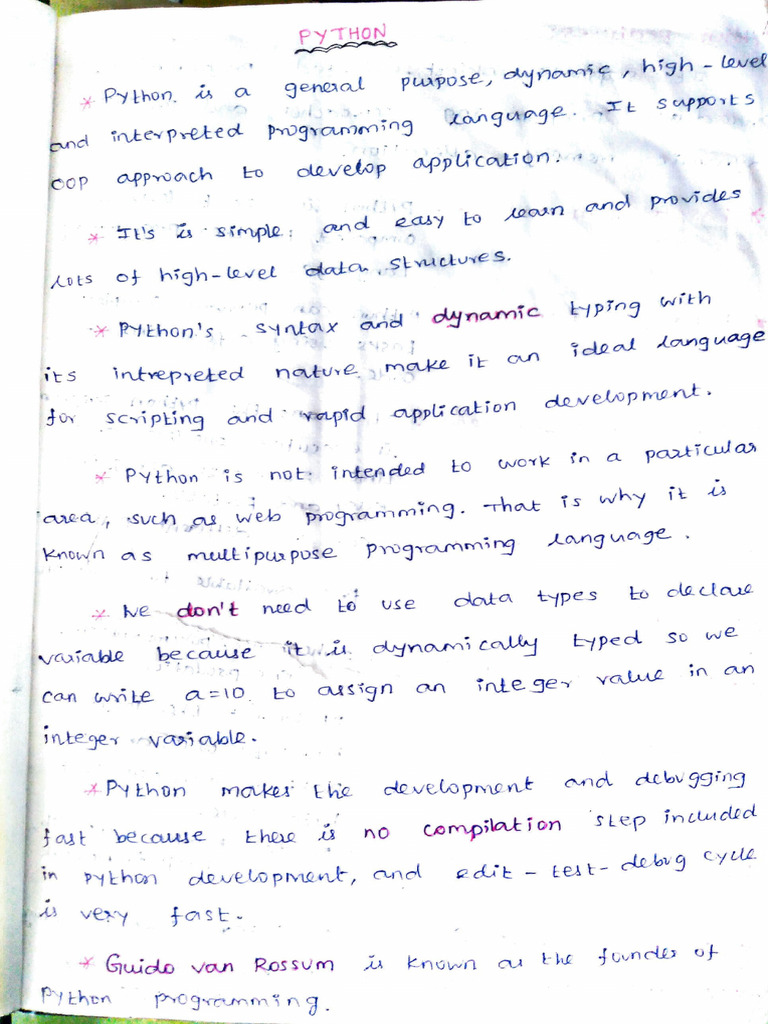 PYTHON
* Python is a general purpose, dynamic, high-level
and interpreted programming language. It supports
OOP approach to develop application.
* It's is simple and easy to learn and provides
lots of high-level data structures.
* Python's syntax and dynamic typing with
its intrepreted nature make it an ideal language
for scripting and rapid application development.
* Python is not intended to work in a particular
area, such as web programming. That is why it is
known as multipurpose programming language.
* We don't need to use data types to declare
variable because it is dynamically typed so we
can write a=10 to assign an integer value in an
integer variable.
* Python makes the development and debugging
fast because there is no compilation step included
in python development, and edit-test-debug cycle
is very fast.
* Guido van Rossum is known as the founder of
Python programming.